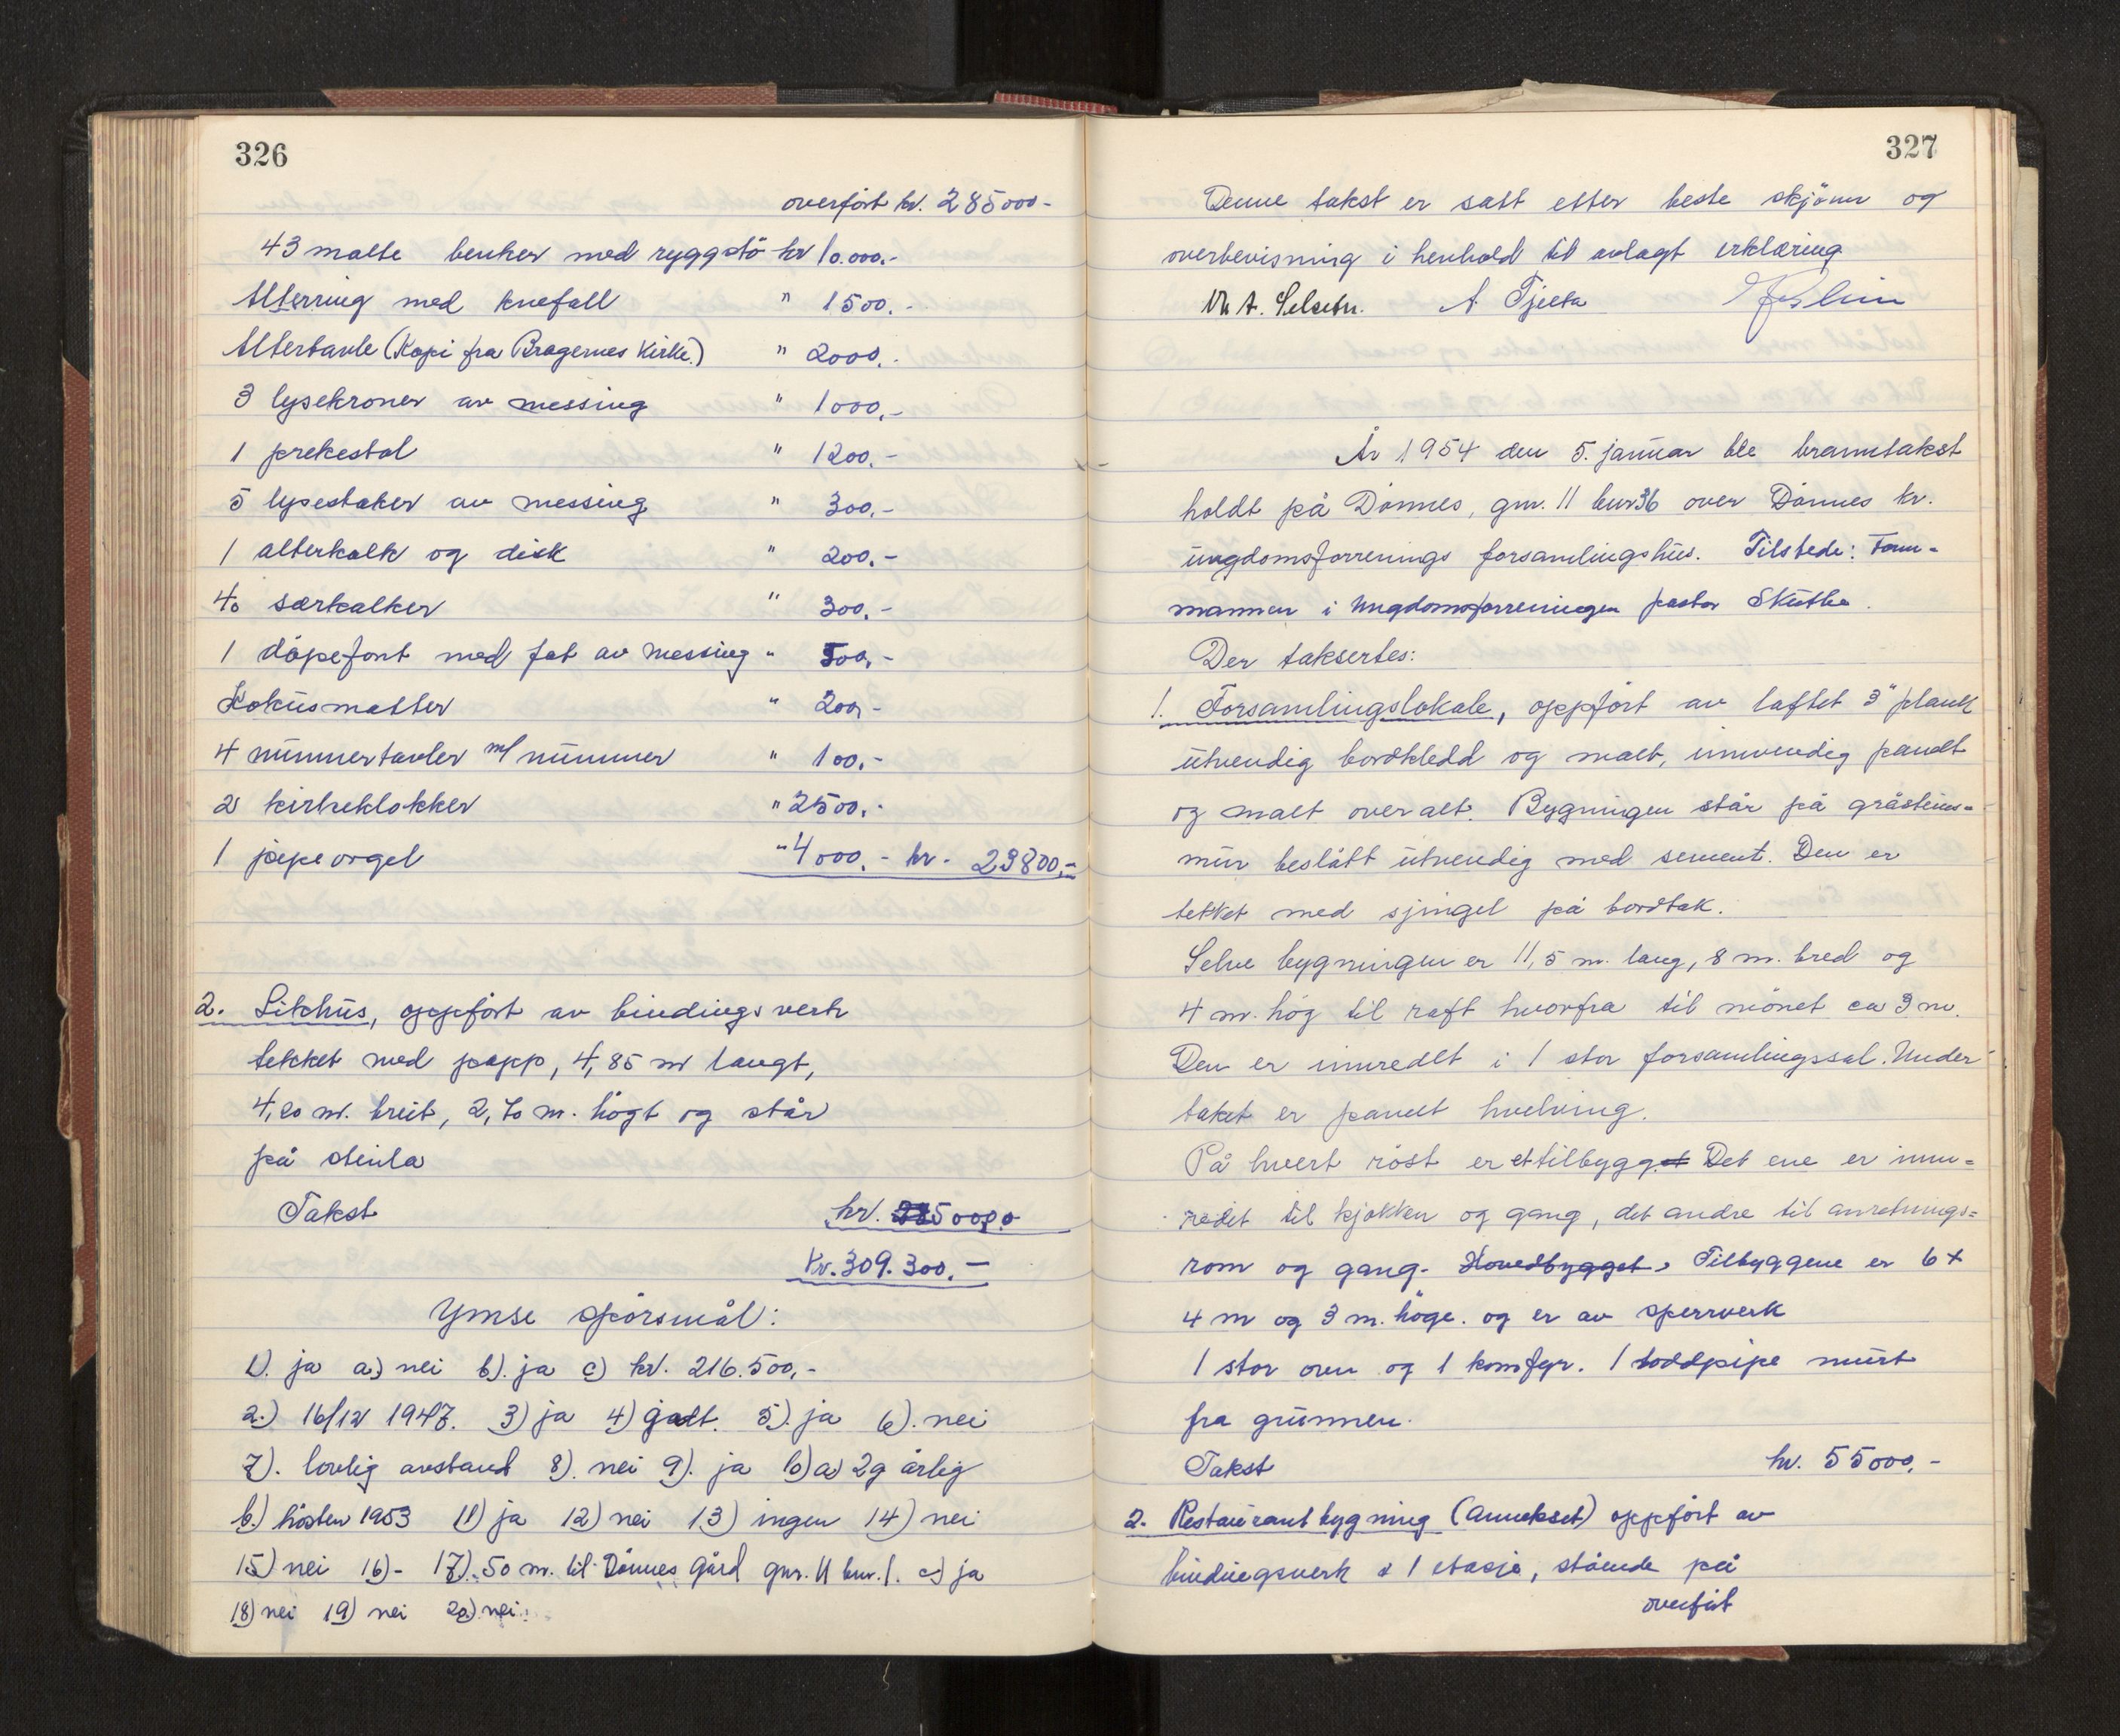 326
overført kr. 285000-
43 malte benker med ryggstø kr 10.000.-
Alterring med knefall " 1500.-
Altertavle (Kopi fra Bragernes Kirke.) " 2000.-
3 lysekroner av messing " 1000.-
1 prekestol " 1200.-
5 lysestaker av messing " 300.-
1 alterkalk og disk " 200.-
40 særkalker " 300.-
1 döpefont med fat av messing " 500.-
Kokusmatter " 200.-
4 nummertavler m/ nummer " 100.-
2 kirkeklokker " 2500.-
1 pipeorgel " 4000.- kr. 23800.-
2. Likhus, oppfört av bindingsverk
tekket med papp, 4,85 m langt,
4,20 m. breit, 2,70 m. högt og står
på steinla
Takst kr. 500,0
Kr. 309.300.-
Ymse spörsmål:
1). ja a) nei b). ja c) kr. 216.500,-
2.) 16/12 1947. 3) ja 4) godt. 5). ja 6). nei
7). lovlig avstand 8). nei 9). ja 10) a) 2g årlig
b.) hösten 1953 11) ja 12) nei 13) ingen 14) nei
15) nei 16)- 17). 50 m. til Dönnes gård gnr. 11 bnr. 1. c) ja
18) nei 19) nei 20) nei.
327
Denne takst er satt etter beste skjönn og
overbevisning i henhold til avlagt erklæring
A Tjetta
År 1954 den 5. januar ble branntakst
holdt på Dönnes, gnr. 11 bnr 36 over Dönnes kr.
ungdomsforrenings forsamlingshus. Tilstede: Form-
mannen i Ungdomsforreningen pastor
Der taksertes:
1. Forsamlingslokale, oppfört av laftet 3" plank
utvendig bordkledd og malt, innvendig panelt
og malt over alt. Bygningen står på gråsteins=
mur beslått utvendig med sement. Den er
tekket med sjingel på bordtak.
Selve bygningen er 11,5 m. lang, 8 m. bred og
4 m. hög til raft hvorfra til mönet ca 3 m.
Den er innredlt i 1 stor forsamlingssal. Under-
taket er panelt hvelving.
På hvert röst er et tilbygg. Det ene er inn=
redet til kjökken og gang, det andre til anretnings=
rom og gang. Hovedbygget, Tilbyggene er 6 x
4 m og 3 m. höge. og er av sperrverk
1 stor ovn og 1 komfyr. 1 toddpipe murt
fra grunnen.
Takst kr. 55000,-
2. Restaurantbygning (Annekset) oppfört av
bindingsverk i 1 etasje, stående på
overfört